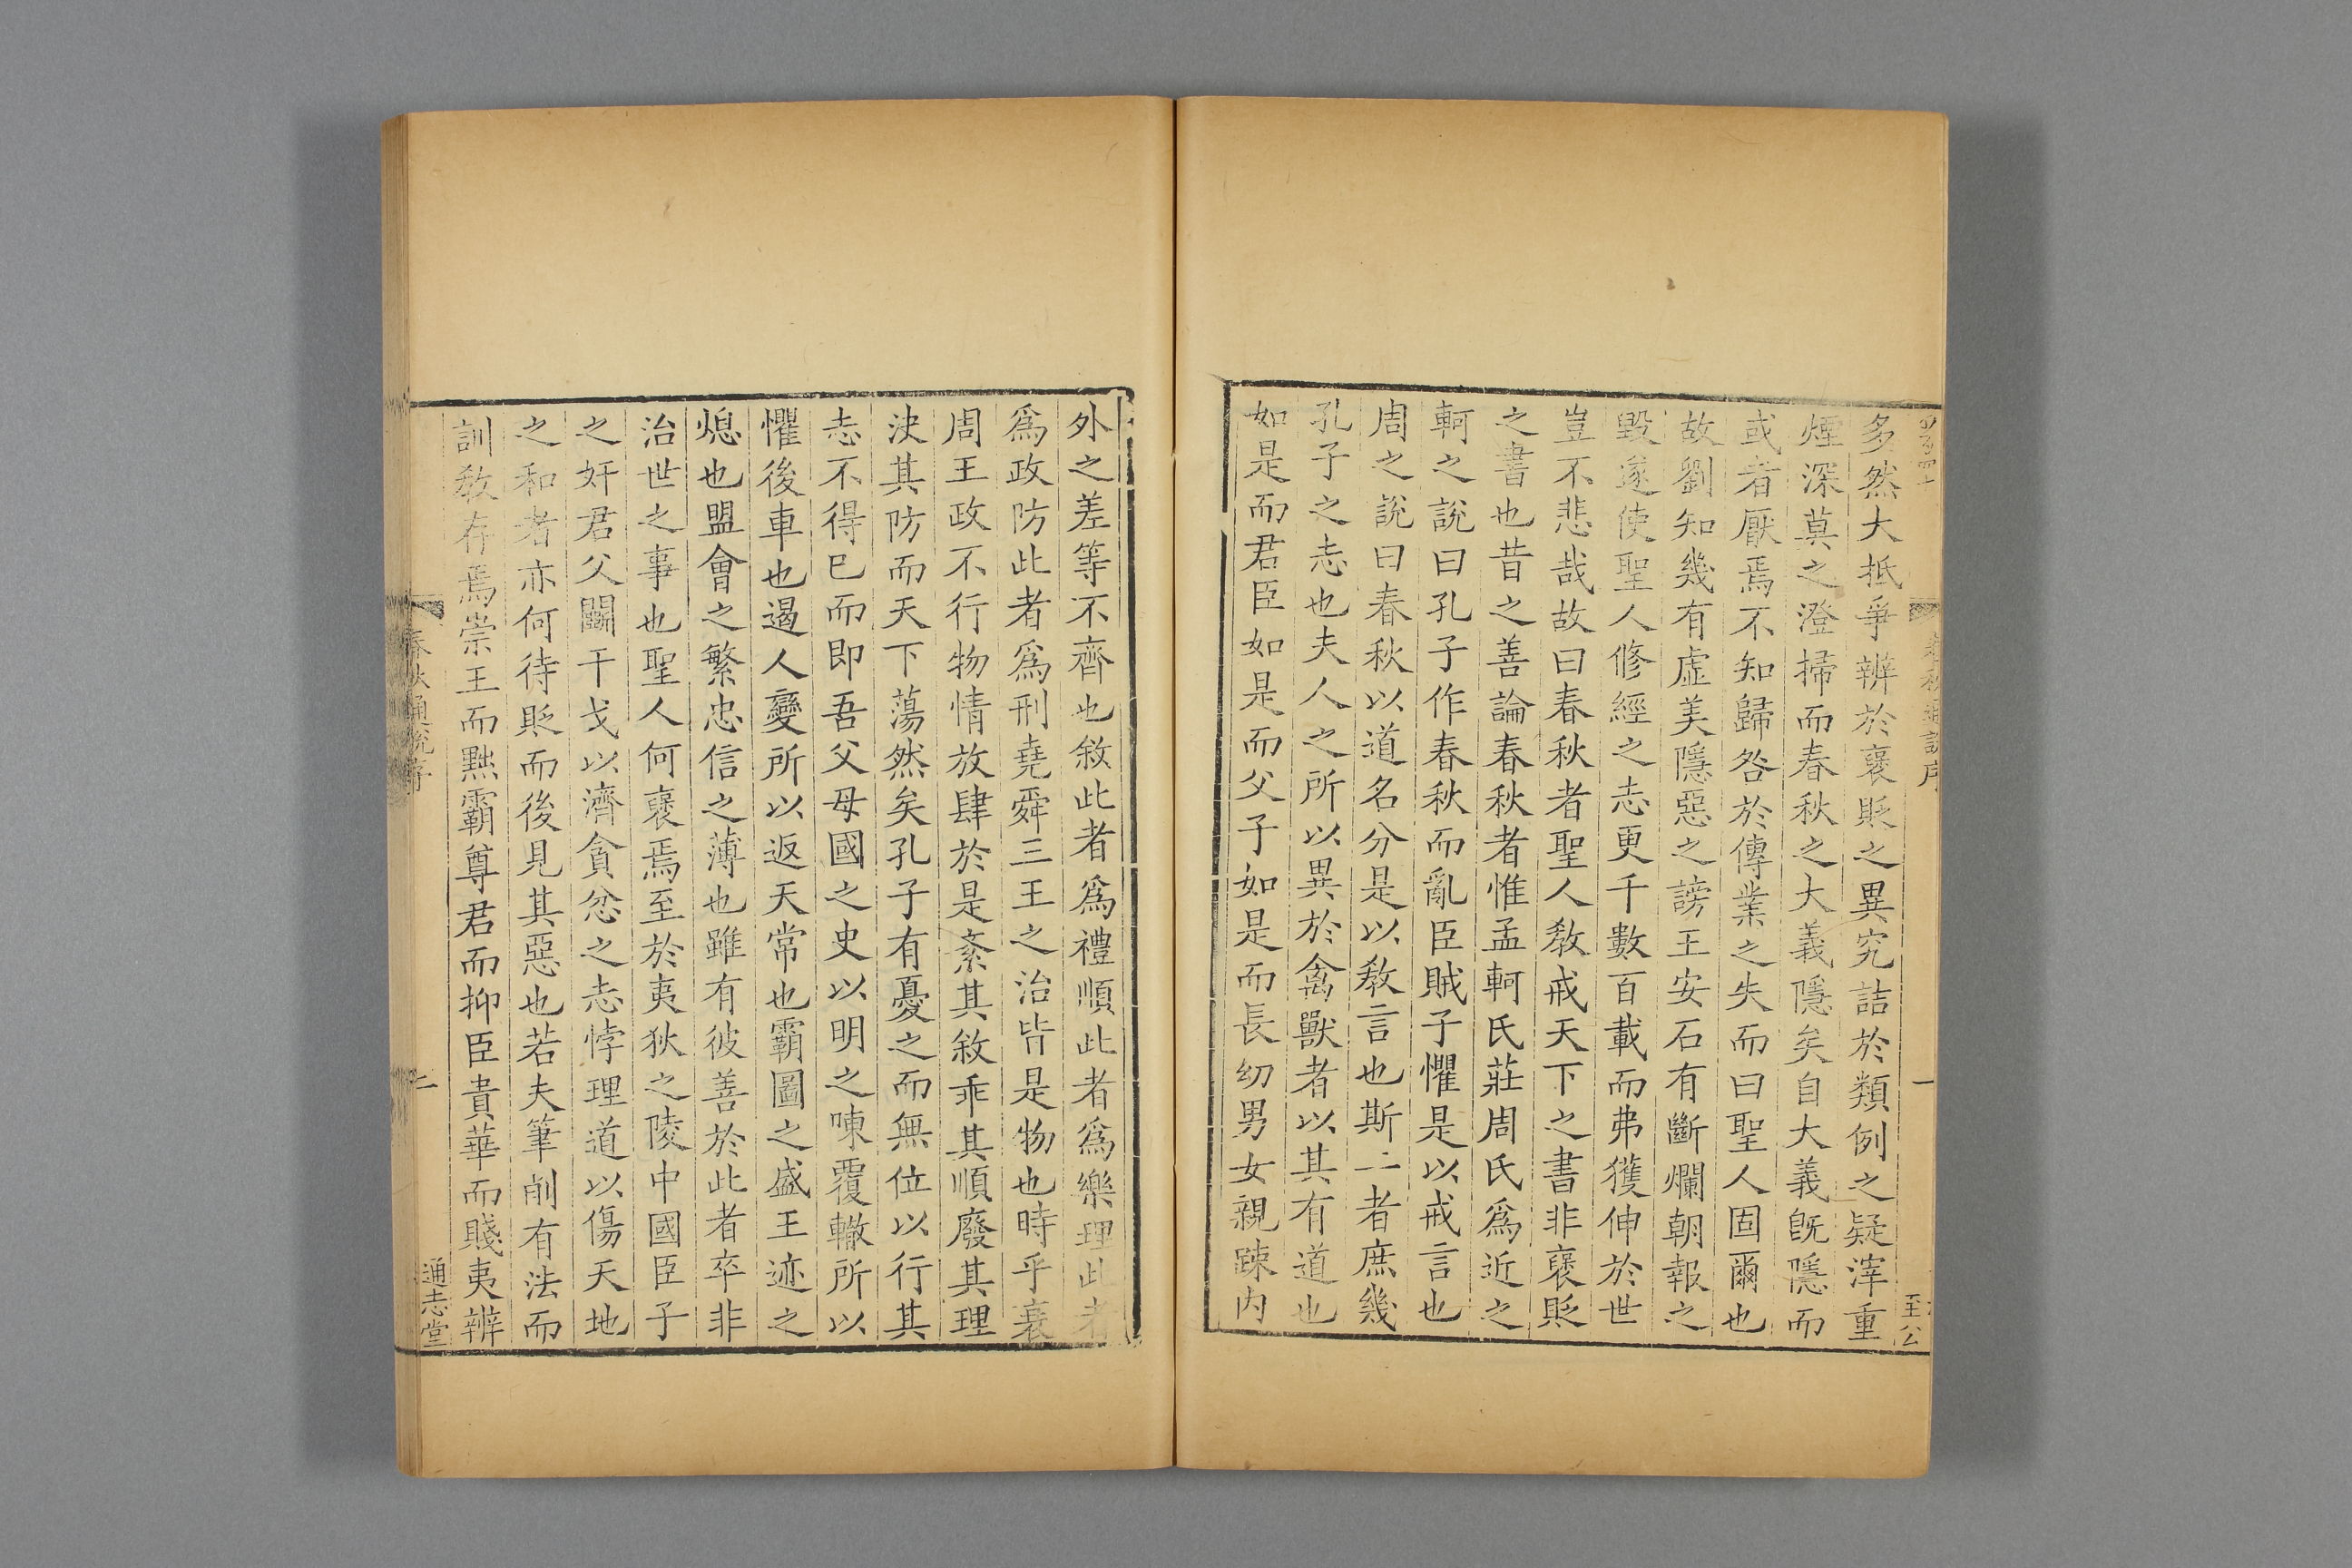 多然大抵爭辨於襃貶之異究詰於類例之疑滓重
煙深莫之澄掃而春秋之大義隱矣自大義旣隱而
或者厭焉不知歸咎於傳業之失而曰聖人固爾也
故劉知幾有虛美隱惡之謗王安石有斷爛朝報之
毀遂使聖人修經之志更千數百載而弗獲伸於世
豈不悲哉故曰春秋者聖人敎戒天下之書非襃貶
之書也昔之善論春秋者惟孟軻氏莊周氏爲近之
軻之說曰孔子作春秋而亂臣賊子懼是以戒言也
周之說曰春秋以道名分是以敎言也斯二者庶幾
孔子之志也夫人之所以異於禽獸者以其有道也
如是而君臣如是而父子如是而長幼男女親踈內
春秋通說序
一
至公
外之差等不齊也敘此者爲禮順此者爲樂理此者
爲政防此者爲刑堯舜三王之治皆是物也時乎衰
周王政不行物情放肆於是紊其敘乖其順廢其理
決其防而天下蕩然矣孔子有憂之而無位以行其
志不得已而即吾父母國之史以明之㖦覆轍所以
懼後車也遏人變所以返天常也霸圖之盛王迹之
熄也盟會之繁忠信之薄也雖有彼善於此者卒非
治世之事也聖人何襃焉至於夷狄之陵中國臣子
之奸君父鬬干戈以濟貪忿之志悖理道以傷天地
之和者亦何待貶而後見其惡也若夫筆削有法而
訓敎存焉崇王而黜霸尊君而抑臣貴華而賤夷辨
春秋通說序
二
通志堂